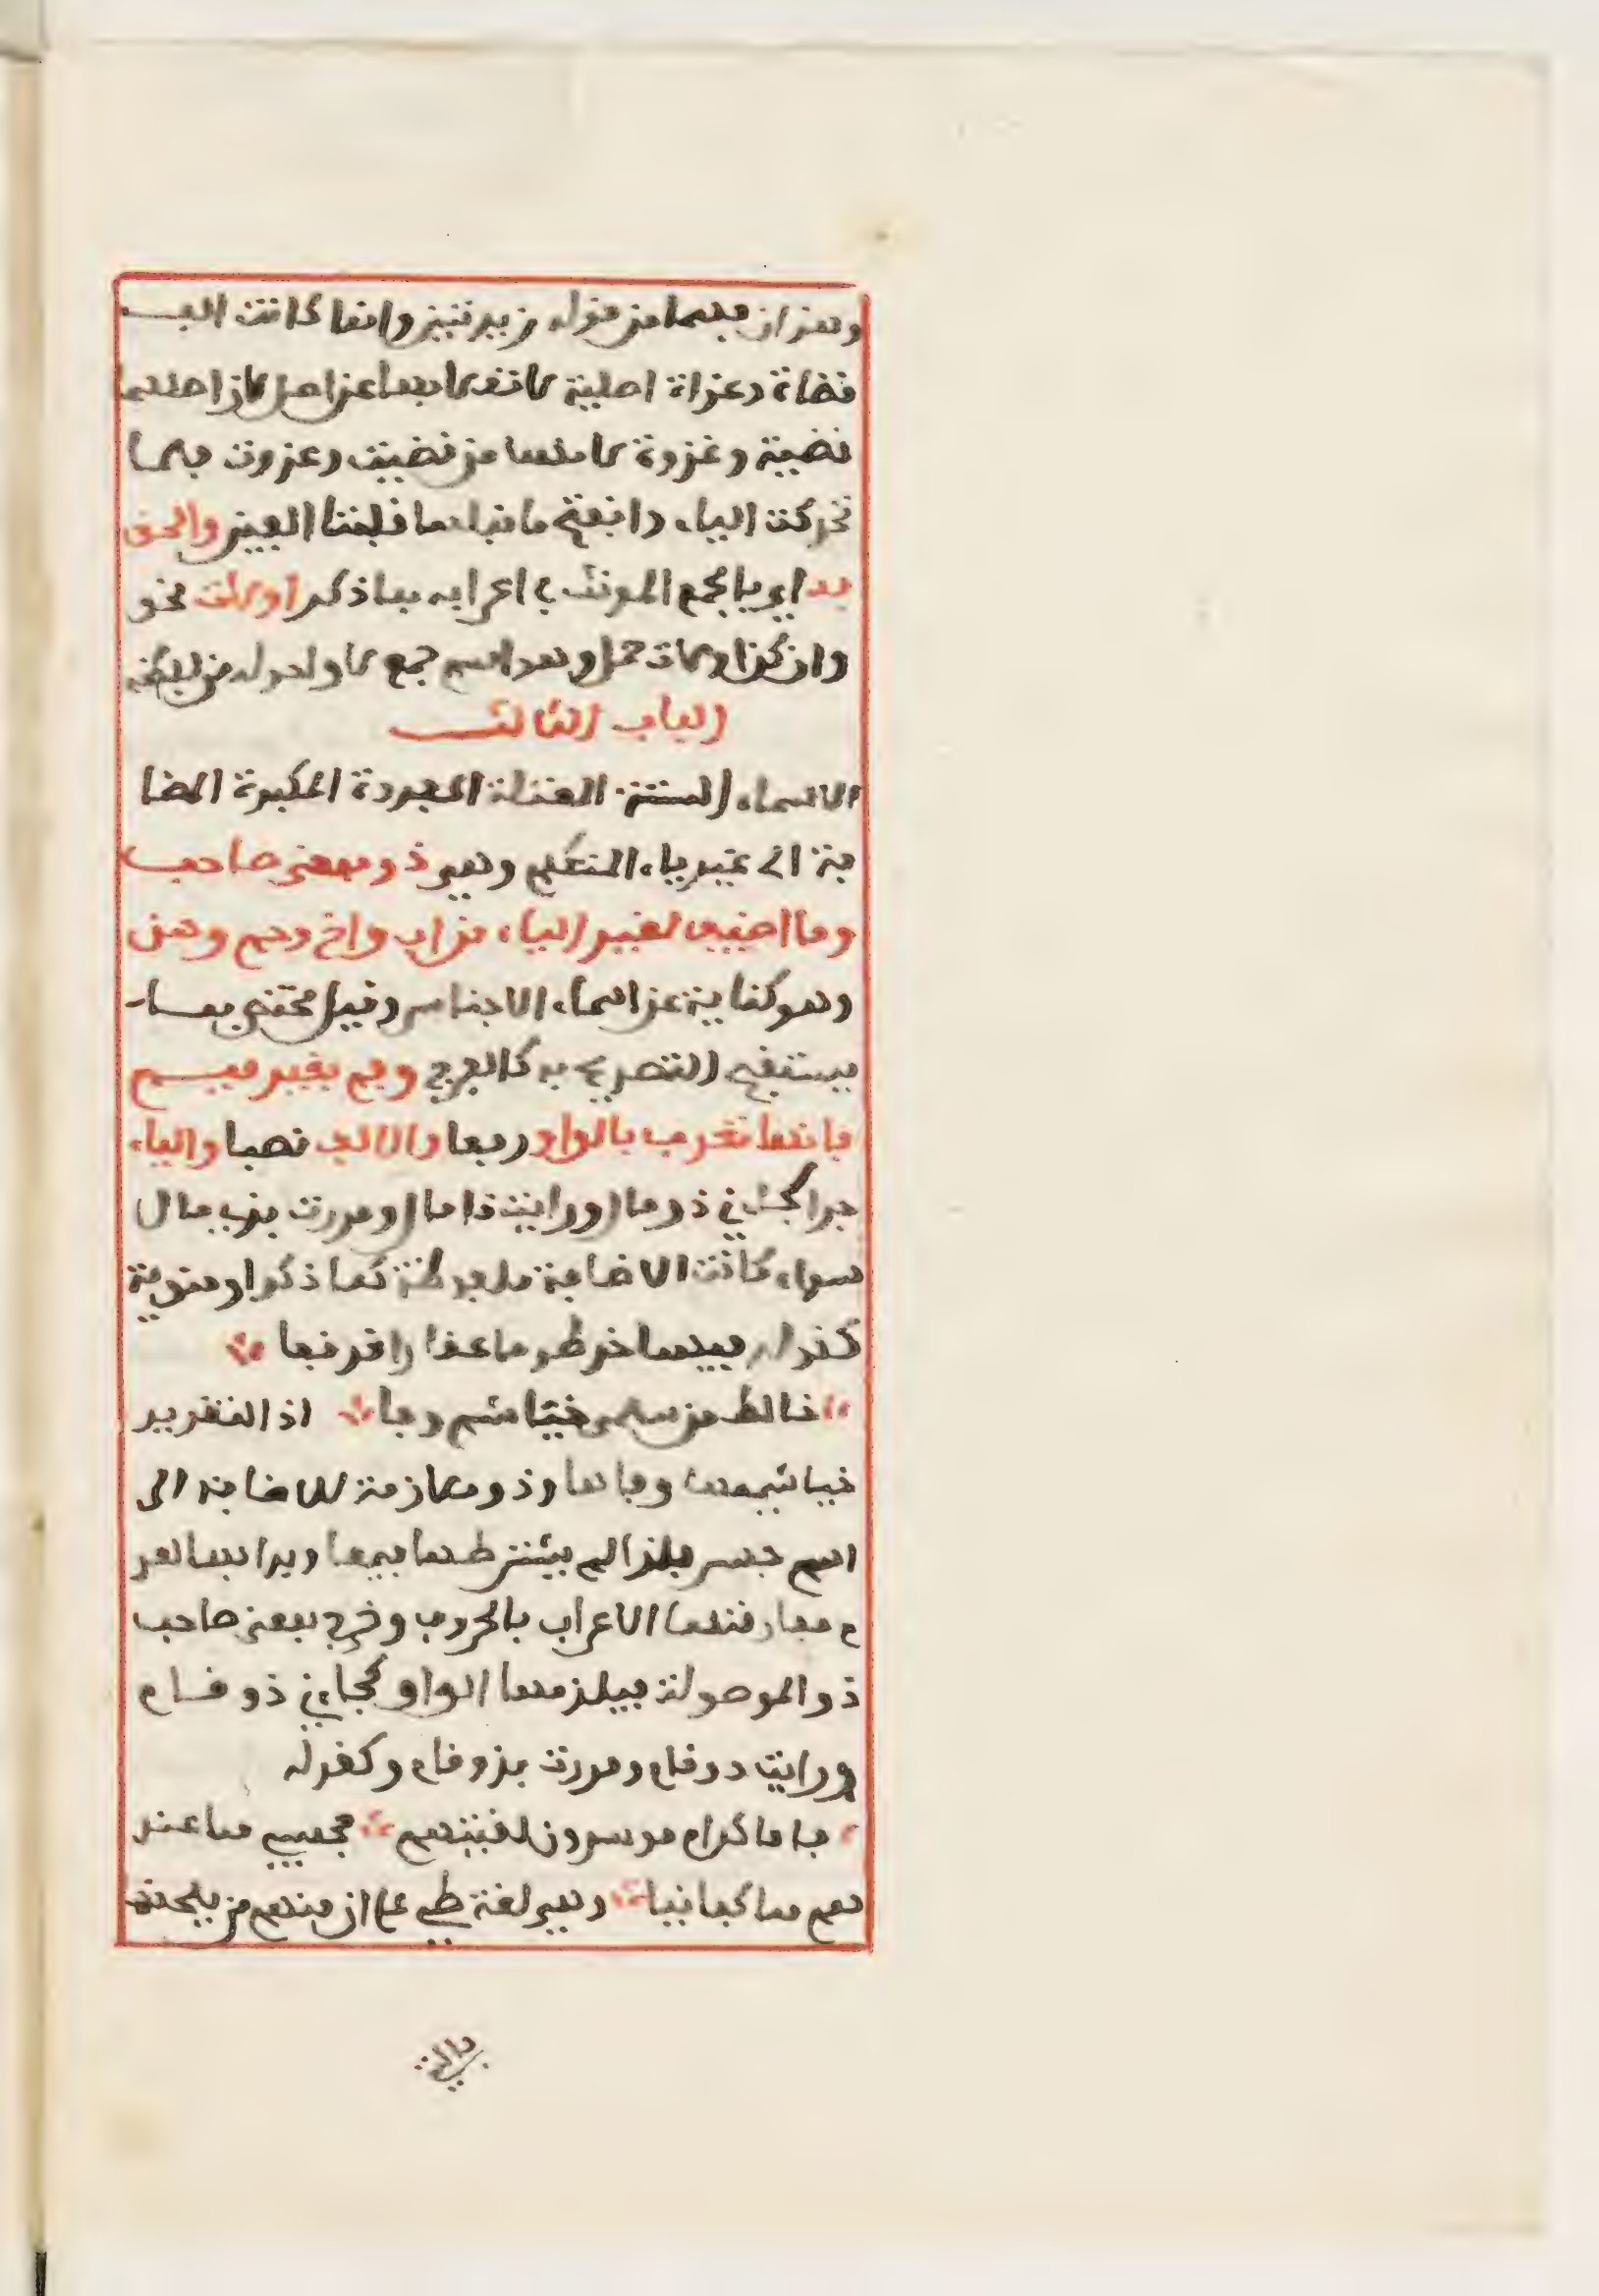 وهزان فيهما من قوله زيدتين وانما كانت الف
قضاة وغزاة اصلية لانقلابها عن اصل لان اصلهما
قضية وغزوة لانهما من قضيت وغزوت فلما
تحركت الياء وانفتح ما قبلها قلبتا الفين والحق
به اي بالجمع المونث في اعرابه بما ذكر اولات نحو
وان كن اولات حمل وهو اسم جمع لا واحد له من لفظه
الباب الثالث
الاسماء الستة المعتلة المفردة المكبرة المضا
فة الى غير ياء المتكلم وهي ذو بمعنى صاحب
وما اضيف لغير الياء من اب واخ وحم وهن
وهو كناية عن اسماء الاجناس وقيل مختص بما
يستقبح التصريح به كالفرج وفم بغير ميم
فانها تعرب بالواو رفعا والالف نصبا والياء
جرا كجاءني ذو مال ورايت ذا مال ومررت بذي مال
سواء كانت الاضافة ملفوظة كما ذكر او منوية
كقوله يصف خرطوما عقارا قرقفا
خالط من سلمى خياشيم وفا اذ التقرير
خياشيمها وفاها وذو ملازمة للاضافة الى
اسم جنس فلذا لم يشترط ما فيها
مفارقتها الاعراب بالحروف وخرج بمعنى صاحب
ذو الموصولة فيلزمها الواو كجاءني ذو قام
ورايت ذو قام ومررت بذو قام وكقوله
فاما كرام موسرون لقيتهم فحسبي من عند
هم ما كفانيا وهي لغة طي على ان منهم من يلحقها